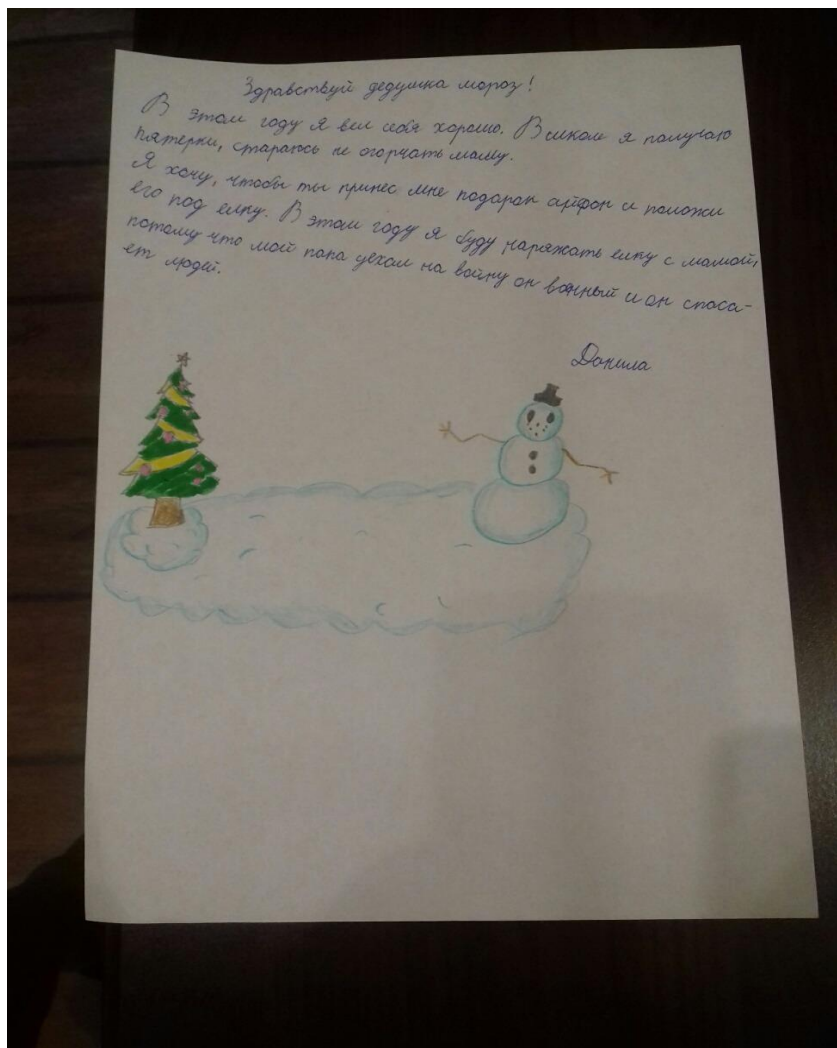 Здравствуй дедушка мороз!
В этом году я вел себя хорошо. В школе я получаю
пятерки, стараюсь не огорчать маму.
Я хочу, чтобы ты принес мне подарок айфон и положи
его под елку. В этом году я буду наряжать елку с мамой,
потому что мой папа уехал на войну он воянный и он спаса-
ет людей.
Данила